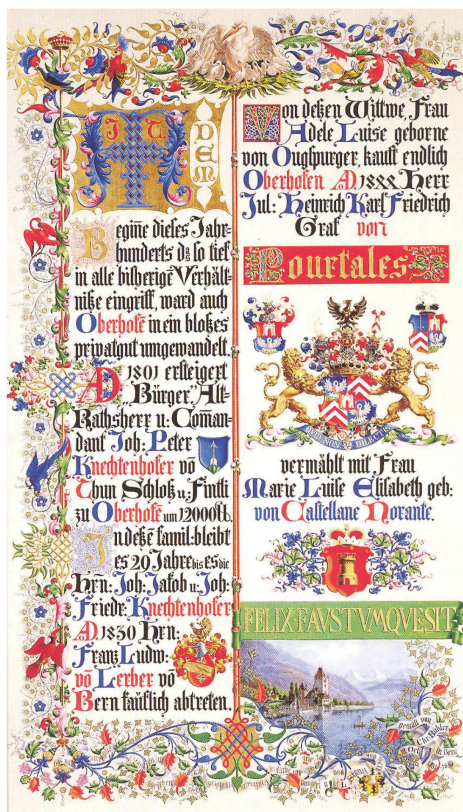 MIT
DEM
Begine dieses Jahr-
hunderts da so tief
in alle bisherige Verhält-
niße eingriff, ward auch
Oberhofē in ein bloßes
privatgut umgewandelt.
A. 1801 ersteigert
Bürger" Alt-
Rathsherr u: Com̄an-
dant Joh: Peter
Knechtenhofer vō
Thun Schloß u,
zu Oberhofē um 12000
In deßē famil: bleibt
es 20 Jahre bis es die
Hrn: Joh: Jakob u: Joh:
Friedr: Knechtenhofer
A. 1830 Hrn:
Franz Ludw:
vō Lerber vō
Bern käuflich abtreten.
Von deßen Wittwe, Frau
Adele Luise geborne
von Ougspurger, kauft endlich
Oberhofen A. Herr
Jul: Heinrich Karl Friedrich
Graf von
Pourtales
QUID NON DILECTIS
vermählt mit Frau
Marie Luise Elisabeth geb:
von Castellane Norante.
FELIX FAVSTVMQVE SIT